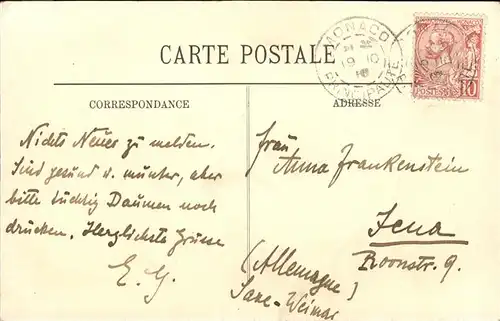 CARTE POSTALE
MONACO
19 10
PRINCIPAUTÉ
MONACO
POSTES
10
CORRESPONDANCE
ADRESSE
Nichts Neues zu melden.
Sind gesund u. munter, aber
bitte tüchtig Daumen noch
drücken. Herzlichste Grüsse
E. G.
Frau
Anna Frankenstein
Jena
Roonstr. 9.
(Allemagne)
Saxe-Weimar